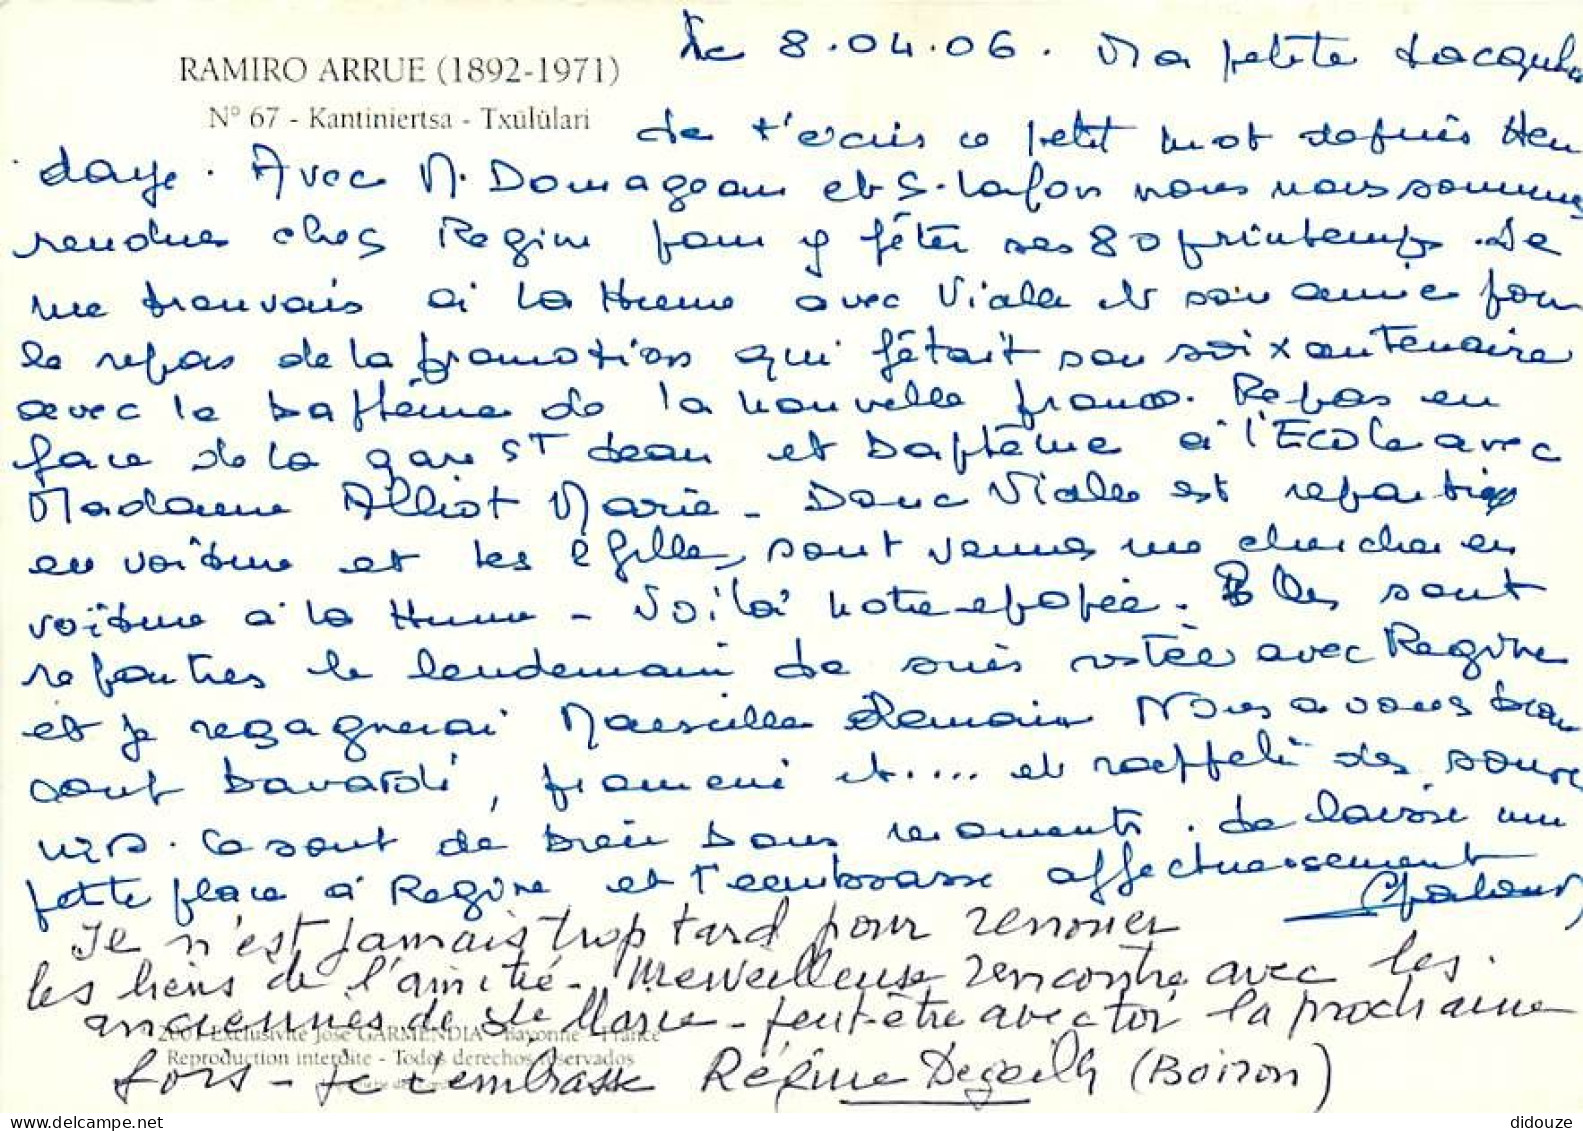 RAMIRO ARRUE (1892-1971)
N° 67 - Kantiniertsa - Txülülari
Le 8.04.06. Ma petite
Je t'écris ce petit mot depuis Hen
daye. Avec M. Domageau et S. Lafon nous nous sommes
rendues chez Regine pour y fêter ses 80 printemps. Je
me trouvais à la Hume avec Viale et son amie pour
le repas de la promotion qui fêtait son soixantenaire
avec le baptême de la nouvelle promo. Repas en
face de la gare St Jean et baptême à l'Ecole avec
Madame Alliot Marie - Donc Viale est repartie
en voiture et les 2 filles sont venues me chercher en
voiture à la Hume - Voilà notre epopée. Elles sont
reparties le lendemain Je suis restée avec Regine
et je regagnerai Marseille demain Nous avons beau
coup bavardé, promené et.... et rappelé des souve
nirs. Ce sont de bien bons moments. Je laisse une
petite place à Regine et t'embrasse affectueusement
Je n'est jamais trop tard pour renouer
les liens de l'amitié - Merveilleuse rencontre avec les
anciennes de Ste Marie - peut-être avec toi la prochaine
fois - je t'embrasse Régine (Boiron)
2001 Exclusivité José GARMENDIA - Bayonne - France
Reproduction interdite - Todos derechos reservados
didouze